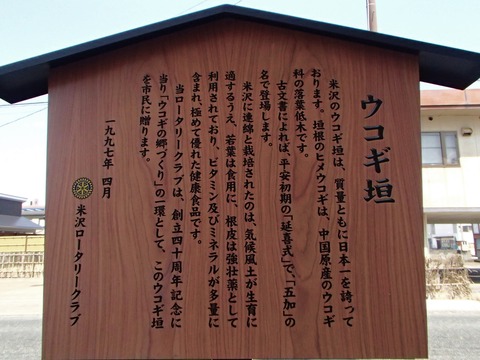 ウコギ垣
米沢のウコギ垣は、質量ともに日本一を誇って
おります。垣根のヒメウコギは、中国原産のウコギ
科の落葉低木です。
古文書によれば、平安初期の「延喜式」で、「五加」の
名で登場します。
米沢に連綿と栽培されたのは、気候風土が生育に
適するうえ、若葉は食用に、根皮は強壮薬として
利用されており、ビタミン及びミネラルが多量に
含まれ、極めて優れた健康食品です。
当ロータリークラブは、創立四十周年記念に
当り「ウコギの郷づくり」の一環として、このウコギ垣
を市民に贈ります。
一九九七年 四月
米沢ロータリークラブ